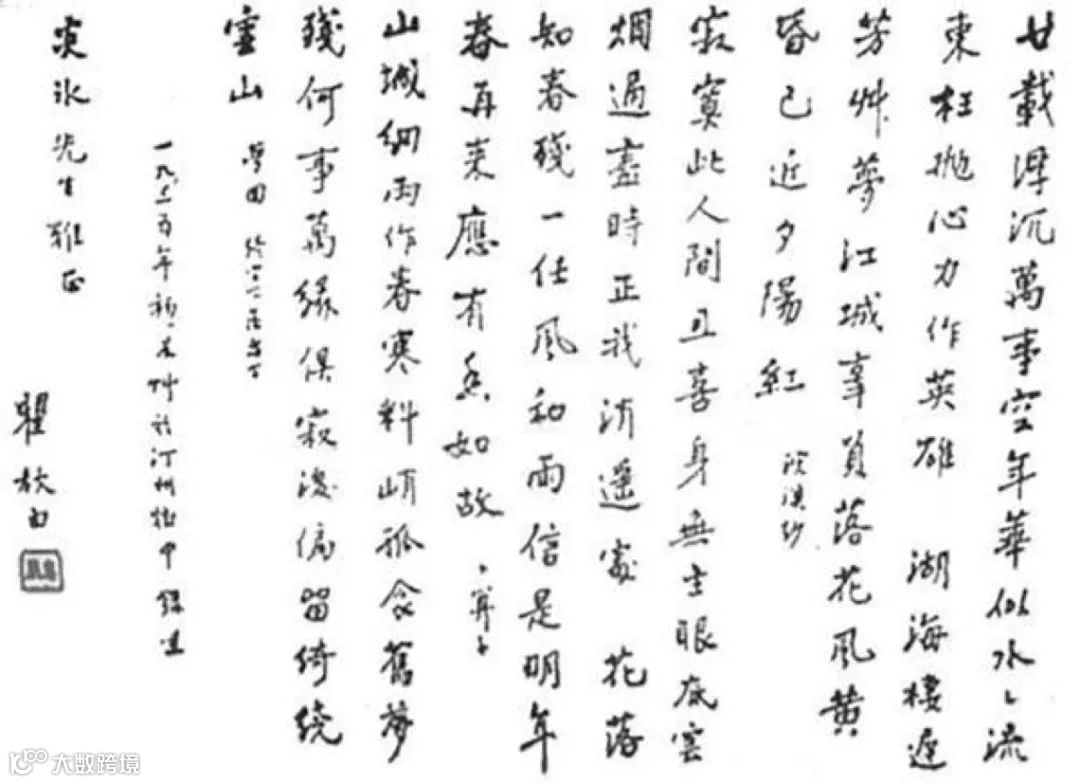 廿載浮沉萬事空年華似水水流
東枉拋心力作英雄 湖海棲遲
芳艸夢江城辜負落花風黄
昏已近夕陽紅 浣溪紗
寂寞此人間且喜身無主眼底雲
烟過盡時正我逍遥處 花落
知春殘一任風和雨信是明年
春再來應有香如故 卜算子
山城細雨作春寒料峭孤衾舊夢
殘何事萬緣俱寂後偏留綺繞
雲山 夢回
一九三五年 艸於汀州 中 録
炎冰先生雅正
瞿秋白
大数跨境